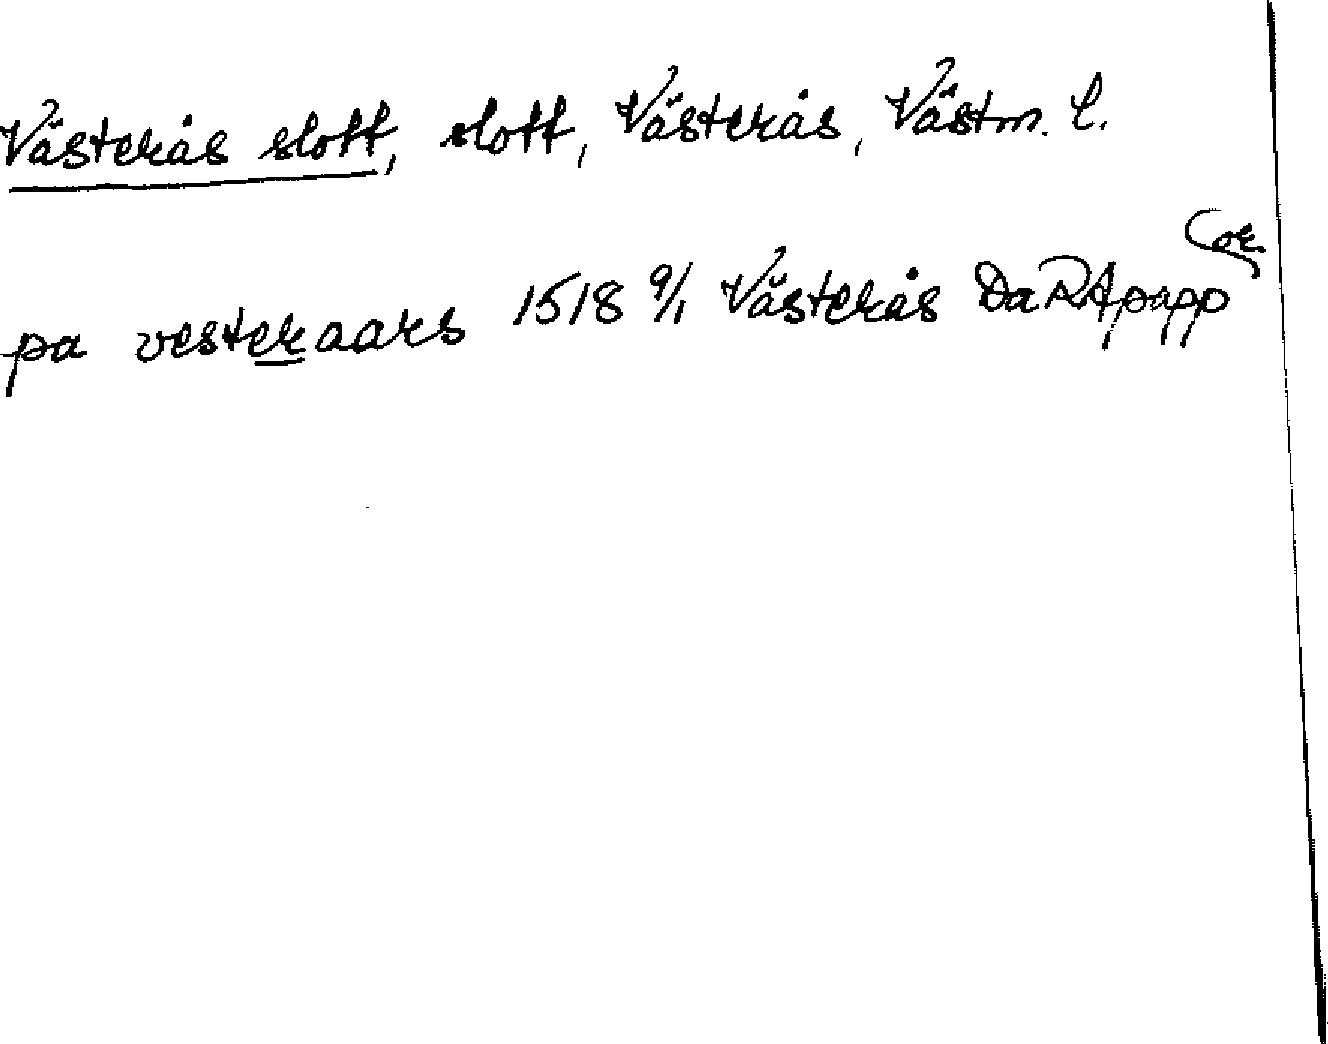 Västerås slott, slott, Västerås, Västm. l.
pa vesteraars 1518 9/1 Västerås DaRApapp or.